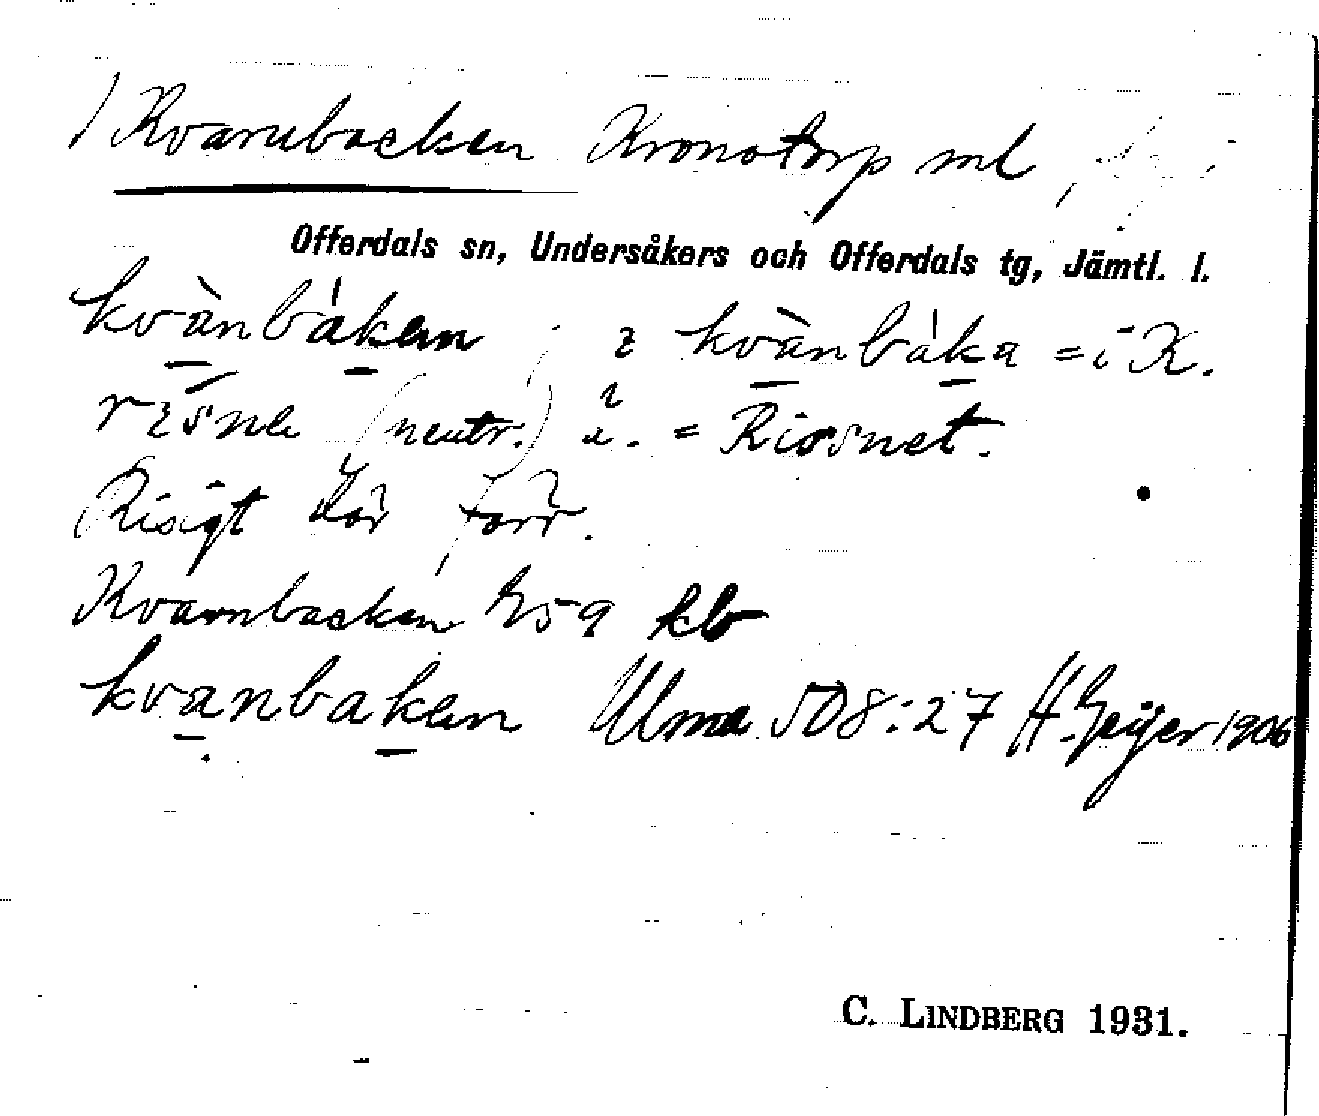 1 Kvarnbacken Kronotorp ml,
Offerdals sn, Undersåkers och Offerdals tg, Jämtl. l.
kvànbàken ; i kvànbàka = i K.
(neutr.) = Riosnet.
Risigt där förr.
Kvarnbacken 1/259 kb
kvanbaken Ulma 508:27 H. Geijer 1906
C. LINDBERG 1931.